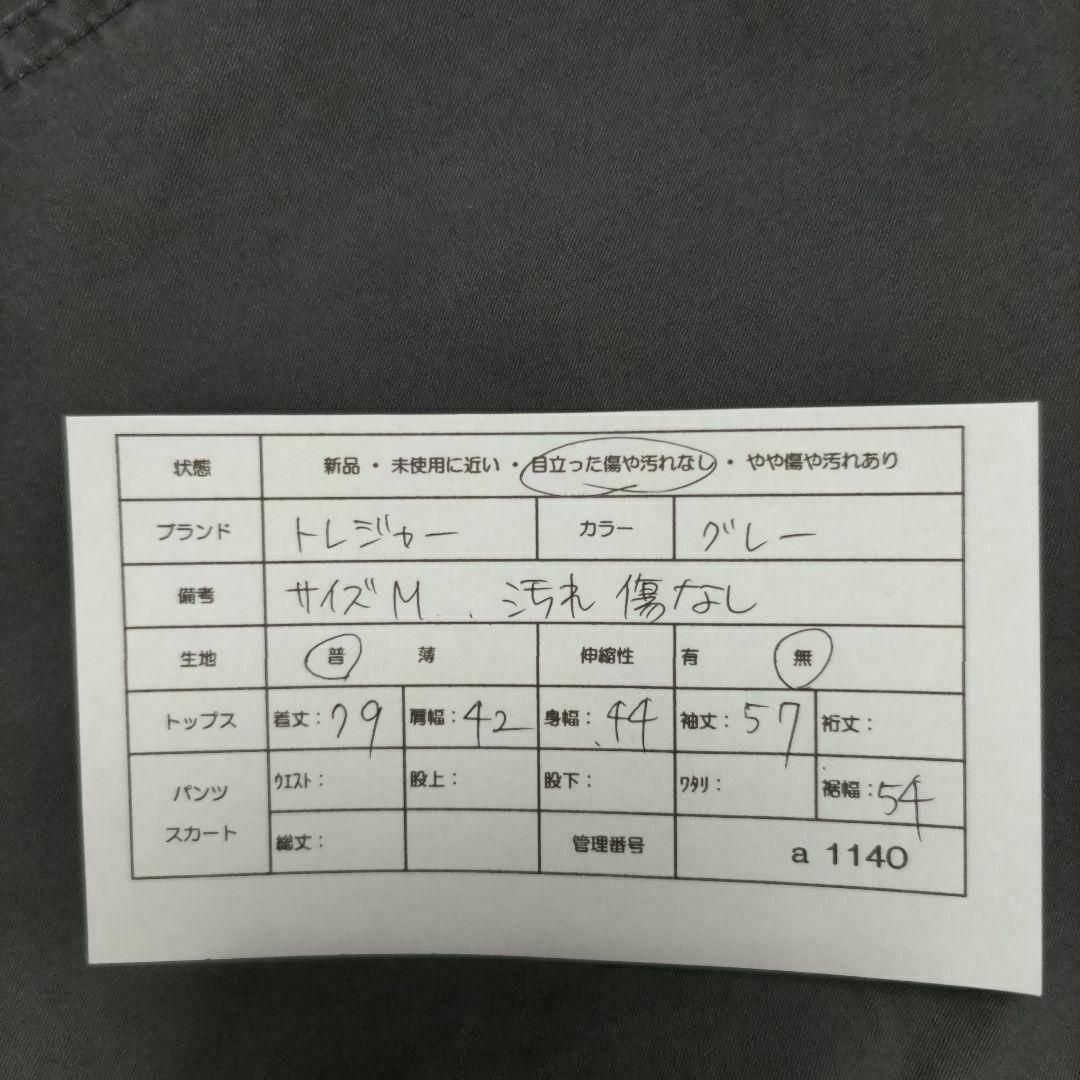 状態 新品・未使用に近い・目立った傷や汚れなし・やや傷や汚れあり
ブランド トレジャー カラー グレー
備考 サイズM.. 汚れ 傷なし
生地 普 薄 伸縮性 有 無
トップス 着丈:79 肩幅:42 身幅:44 袖丈:57 裄丈:
パンツ スカート ウエスト: 股上: 股下: ワタリ: 裾幅:54
総丈: 管理番号 a 1140